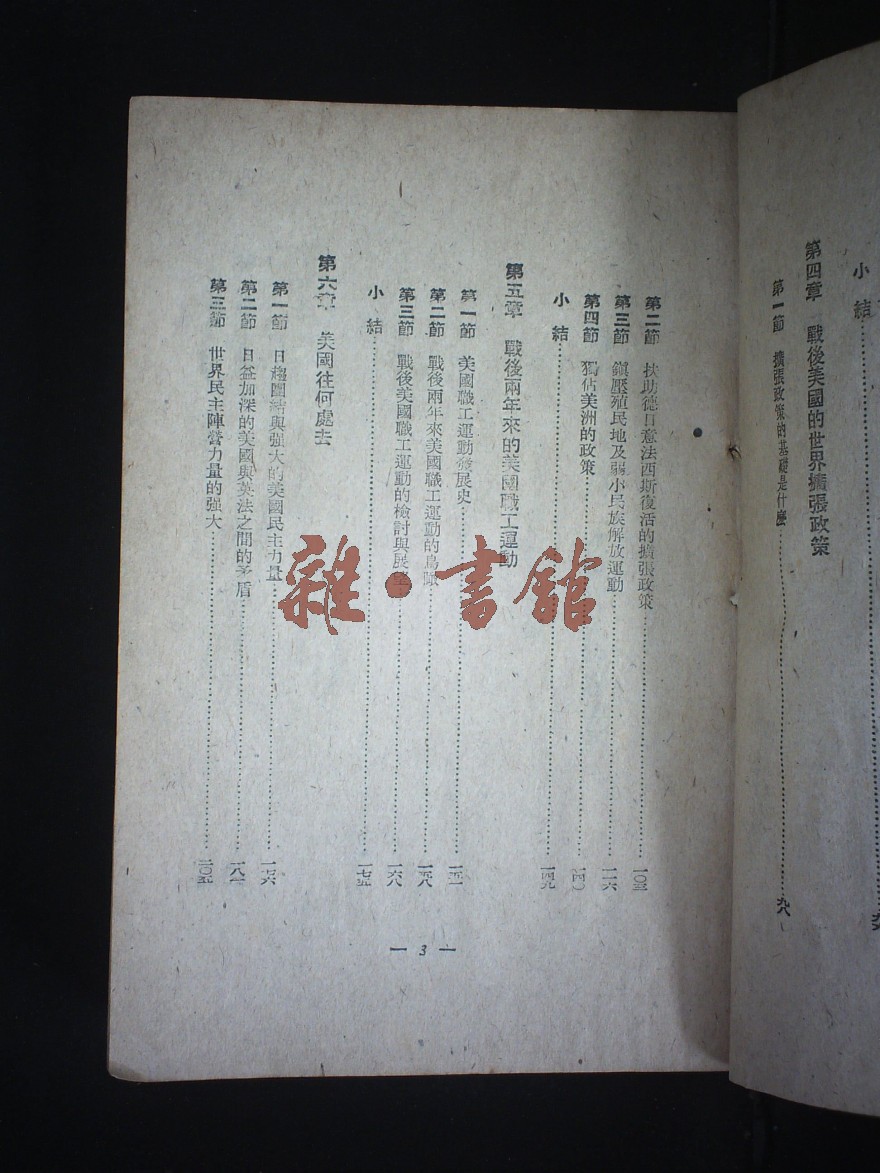 小結
第四章 戰後美國的世界擴張政策
第一節 擴張政策的基礎是什麼……九八
第二節 扶助德日意法西斯復活的擴張政策……一〇三
第三節 鎭壓殖民地及弱小民族解放運動……一一六
第四節 獨佔美洲的政策……一四〇
小結……一四九
第五章 戰後兩年來的美國職工運動
第一節 美國職工運動發展史……
第二節 戰後兩年來美國職工運動的鳥瞰……一五八
第三節 戰後美國職工運動的檢討與展望……一六八
小結……一七五
第六章 美國往何處去
第一節 日趨團結與強大的美國民主力量……一七六
第二節 日益加深的美國與英法之間的矛盾……一八一
第三節 世界民主陣營力量的強大……二〇五
— 3 —
雜·書館